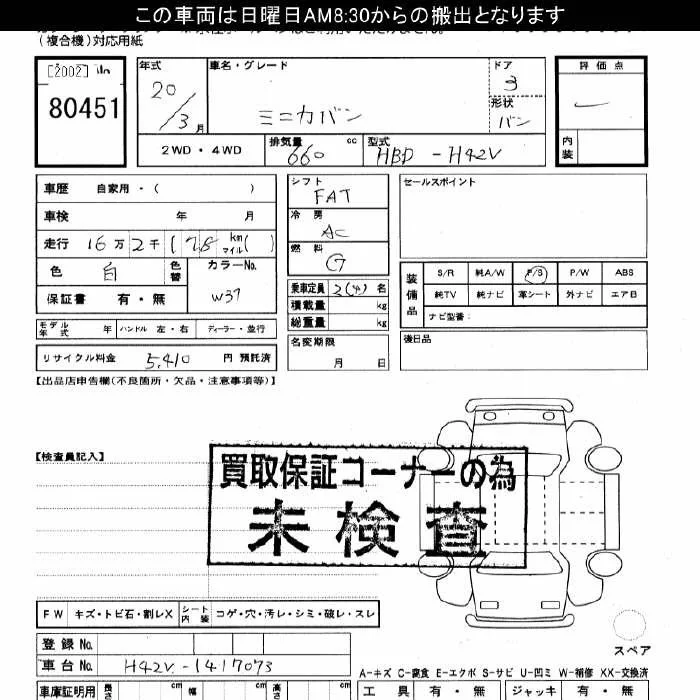 この車両は日曜日AM8:30からの搬出となります
(複合機)対応用紙
[2002] No
80451
年式 車名・グレード ドア 評価点
20/3月 ミニカバン 3
形状
バン
2WD・4WD 排気量 660 cc 型式 HBD-H42V 内装
車歴 自家用・( )
車検 年 月
走行 16万2千(78 km マイル( )
色 白 色替 カラーNo. W37
保証書 有・無
モデル年式 年 ハンドル 左・右 ディーラー・並行
リサイクル料金 5,410 円 預託済
シフト FAT
冷房 AC
燃料 G
乗車定員 2(4) 名
積載量 kg
総重量 kg
名変期限 月 日
セールスポイント
装備品 S/R 純A/W P/S P/W ABS
純TV 純ナビ 革シート 外ナビ エアB
ナビ型番:
後日品
【出品店申告欄(不良箇所・欠品・注意事項等)】
【検査員記入】
買取保証コーナーの為
未検査
FW キズ・トビ石・割レX シート内装 コゲ・穴・汚レ・シミ・破レ・スレ
スペア
登録No.
車台No. H42V-1417073
A-キズ C-腐食 E-エクボ S-サビ U-凹ミ W-補修 XX-交換済
車庫証明用 長さ cm 幅 cm 高さ cm 工具 有・無 ジャッキ 有・無